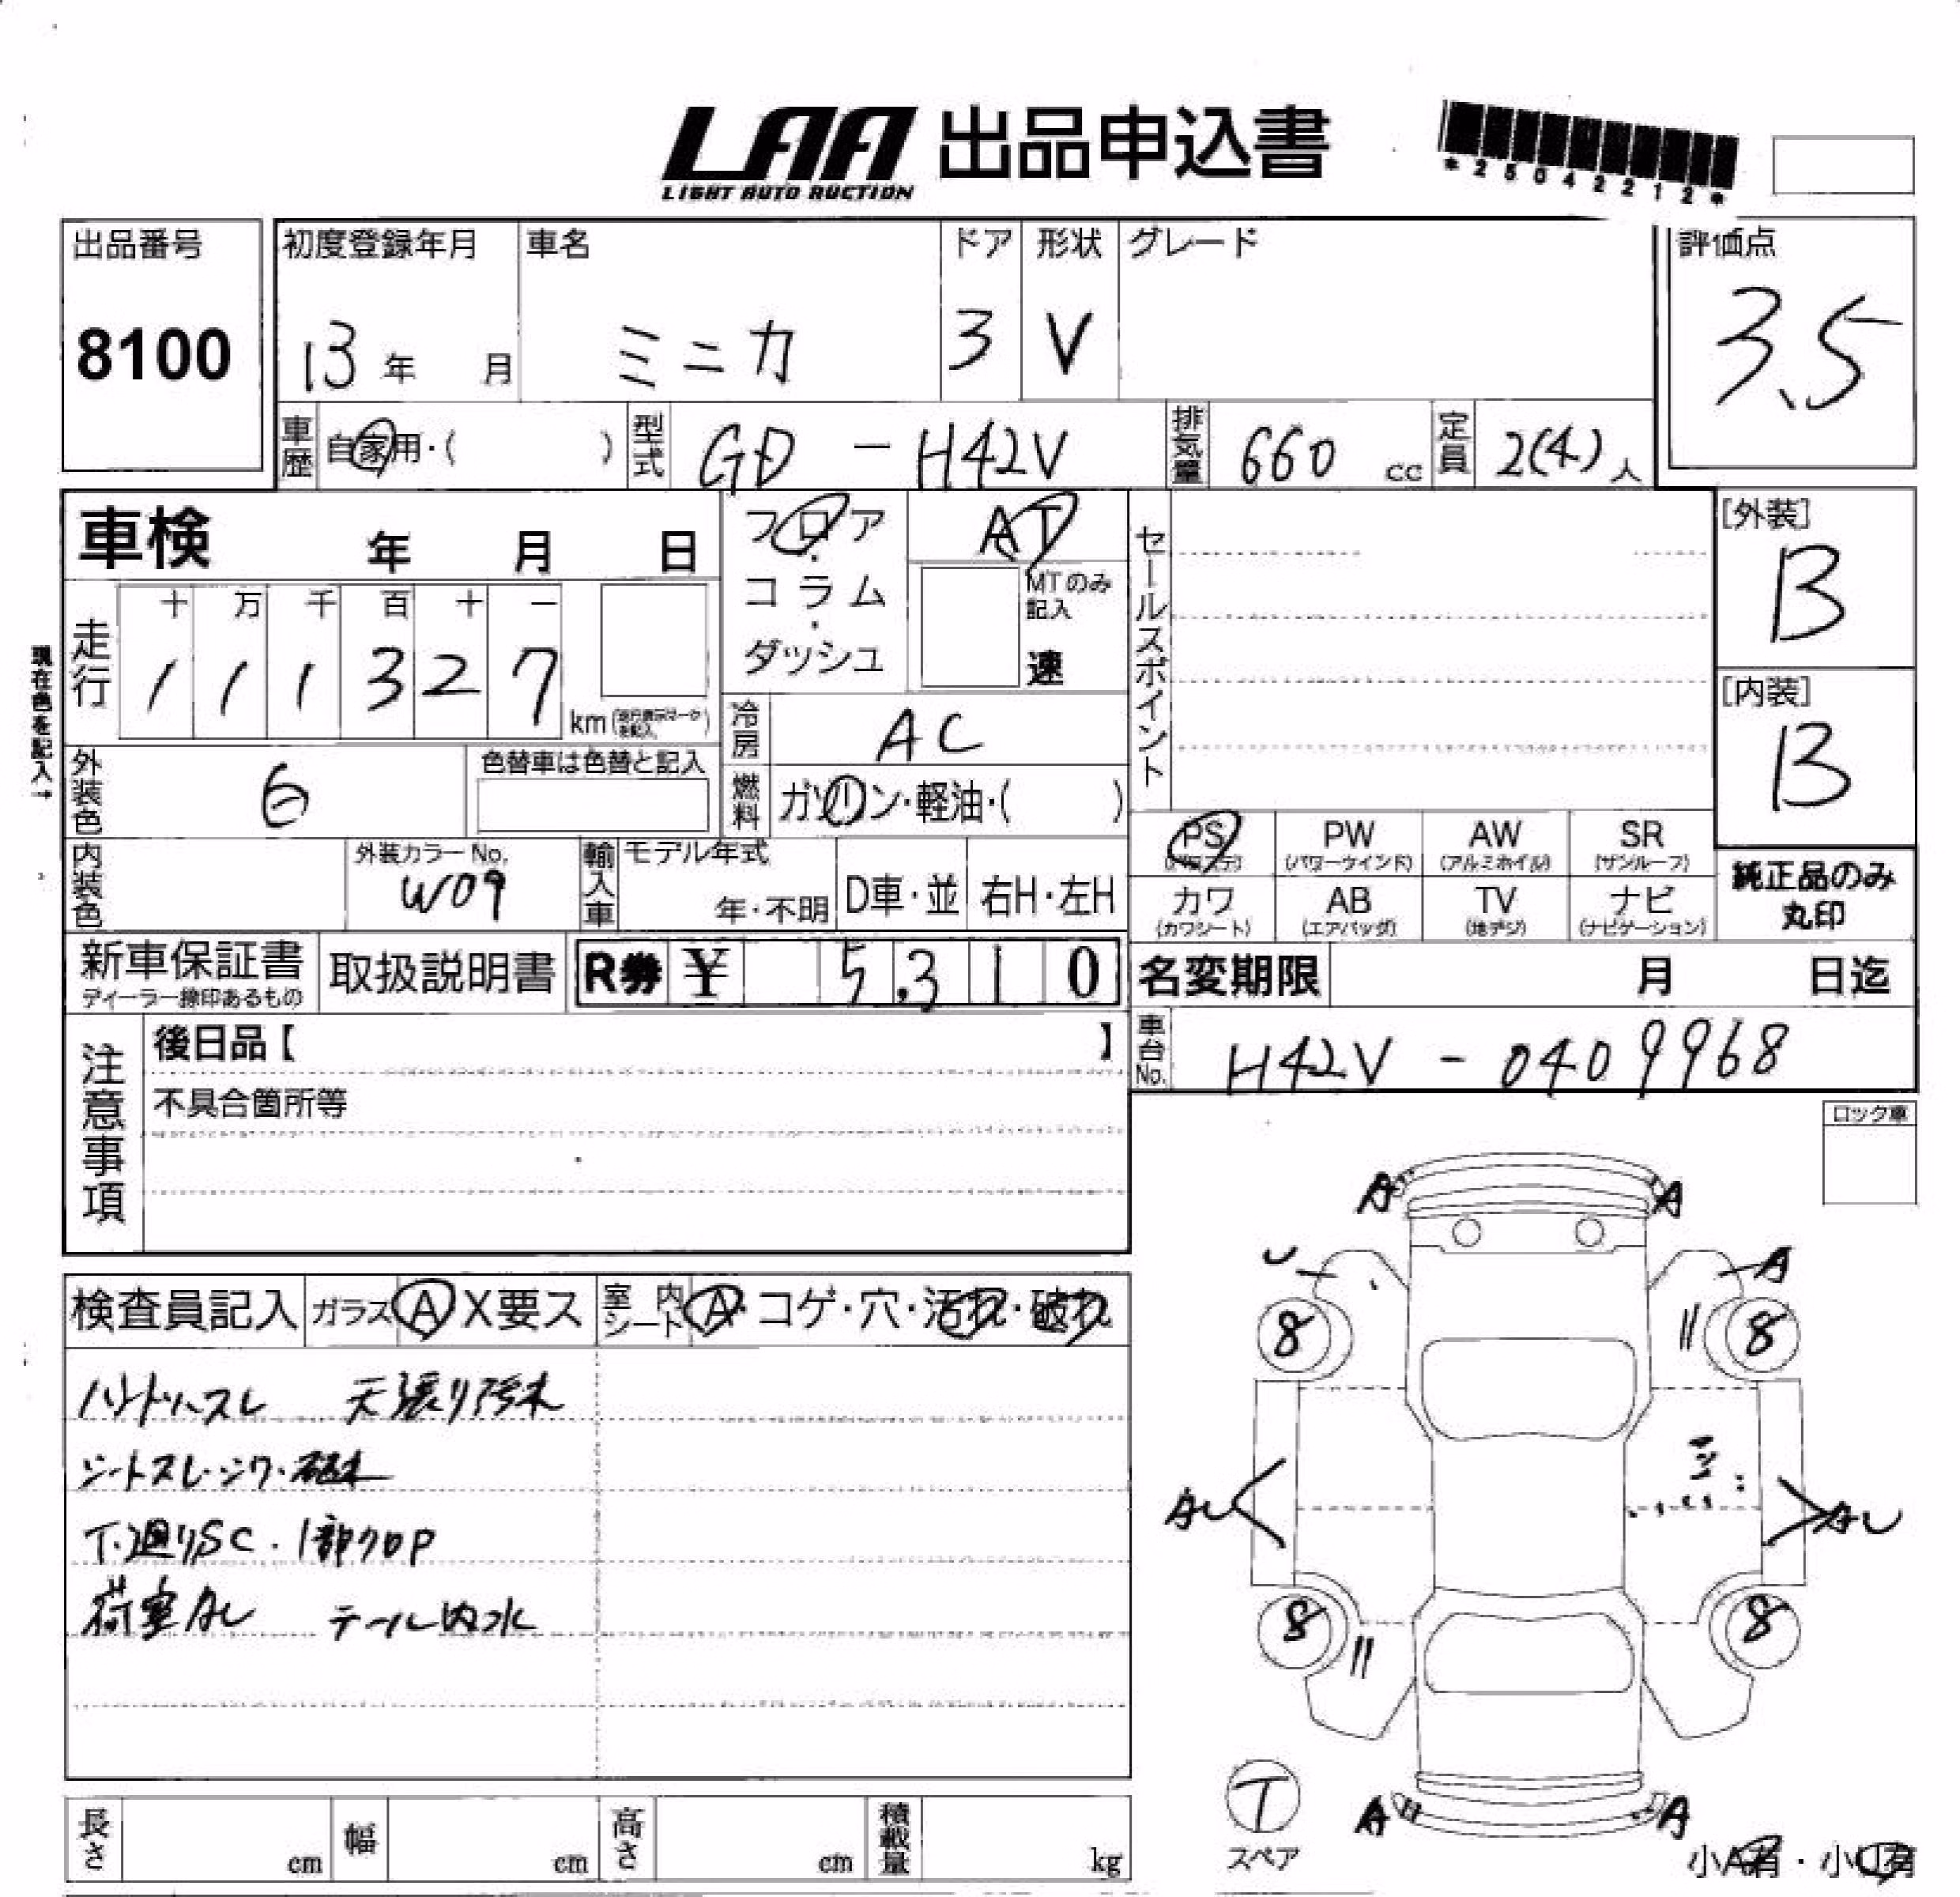 LAA 出品申込書
LIGHT AUTO AUCTION
*25042212*
出品番号 初度登録年月 車名 ドア 形状 グレード 評価点
8100 13年 月 ミニカ 3 V 3.5
車歴 自家用・( ) 型式 GD - H42V 排気量 660 cc 定員 2(4)人
車検 年 月 日
フロア・コラム・ダッシュ
AT
MTのみ記入
速
セールスポイント
[外装]
B
[内装]
B
純正品のみ丸印
現在色を記入→
走行 十 万 千 百 十 一
1 1 1 3 2 7 km
冷房 AC
外装色 白
色替車は色替と記入
燃料 ガソリン・軽油・( )
PS PW AW SR
(パワステ) (パワーウインド) (アルミホイル) (サンルーフ)
カワ AB TV ナビ
(カワシート) (エアバッグ) (地デジ) (ナビゲーション)
内装色
外装カラーNo.
W09
輸入車 モデル年式
年・不明 D車・並 右H・左H
新車保証書 取扱説明書 R券 ¥ 5,310
ディーラー捺印あるもの
名変期限 月 日迄
車台No. H42V - 0409968
注意事項
後日品【 】
不具合箇所等
ロック車
検査員記入 ガラス A X要ス 室内シート A・コゲ・穴・汚れ・破れ
ハンドルスレ 天張り汚れ
シートスレ・シワ・破れ
下廻りSC・1部クロP
荷室AU テール内水
A A
U A
8 8
AU AU
8 8
T
スペア
A A
小A有・小U有
長さ cm 幅 cm 高さ cm 積載量 kg